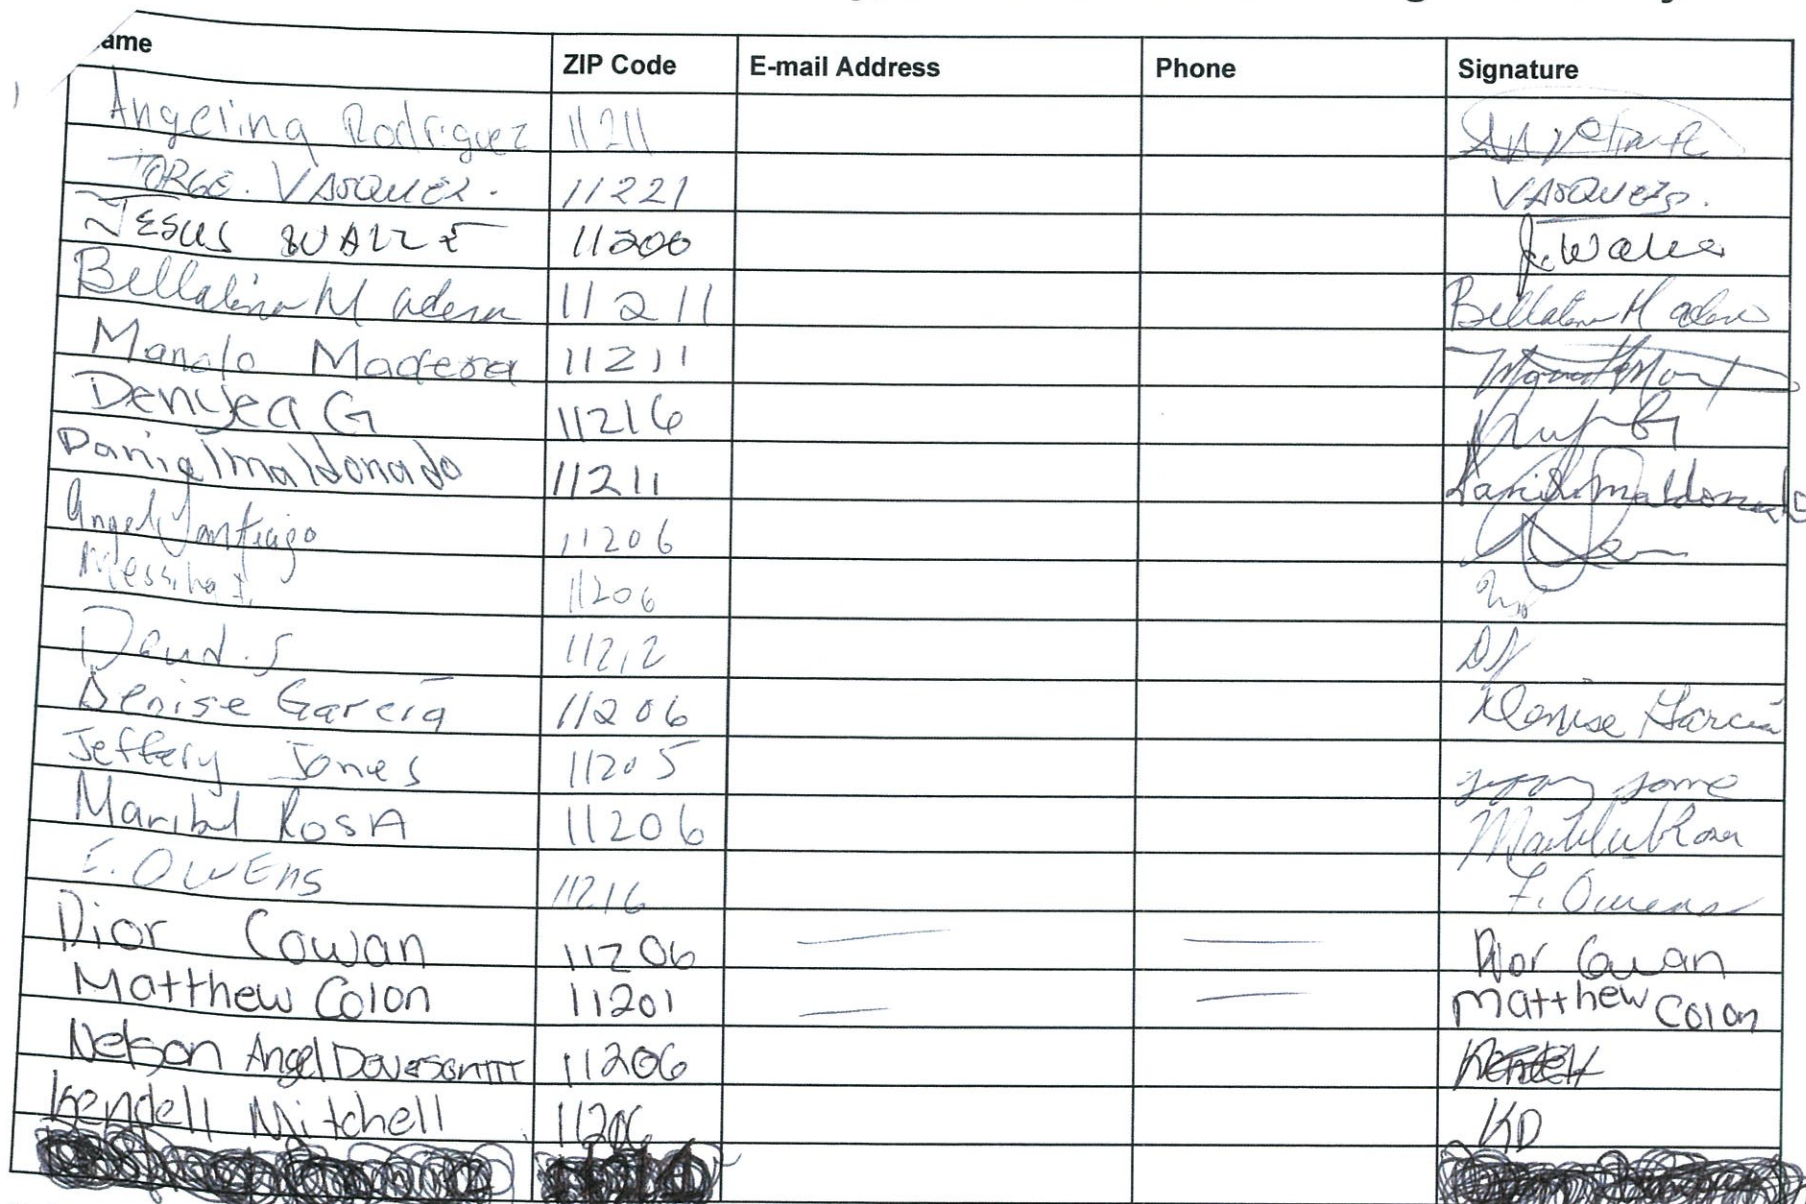 ame ZIP Code E-mail Address Phone Signature
Angelina Rodriguez 11211
JORGE. VASQUEZ. 11221 VASQUEZ.
JESUS WALLE 11206 J. Walle
Bellalina Madera 11211 Bellalina Madera
Manolo Madera 11211
Denyea G 11216
Daniel maldonado 11211 Daniel maldonado
Angel Santiago 11206
11206
David. S 11212 DS
Denise Garcia 11206 Denise Garcia
Jeffery Jones 11205
Maribel ROSA 11206 Maribel Rosa
E. OWENS 11216 E. Owens
Dior Cowan 11206 Dior Cowan
Matthew Colon 11201 Matthew Colon
Nelson Angel 11206
Kendell Mitchell 11206 KD